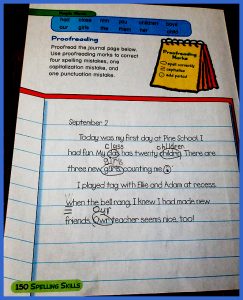 had class him you children boys
our girls me them her glad
Proofreading
Proofread the journal page below.
Use proofreading marks to correct
four spelling mistakes, one
capitalization mistake, and
one punctuation mistake.
Proofreading
Marks
spell correctly
capitalize
add period
September 2
Today was my first day at Pine School. I
class children
had fun. My has twenty There are
girls
three new counting me
I played tag with Ellie and Adam at recess.
when the bell rang, I knew I had made new
Our
friends. Owr teacher seems nice, too!
150 Spelling Skills